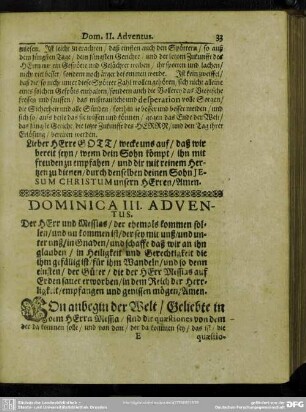 Dom. II. Adventus. 33
wiesen. Ist leicht zu erachten / daß einsten auch den Spöttern / so auß
dem jüngsten Tage / dem jüngsten Gerichte / und der letzten Zukunfft des
HErrn nur ein Gespötte und Gelächter treiben / ihr spotten und lachen /
nicht viel besser / sondern noch ärger bekommen werde. Ist kein zweiffel /
daß die so nicht unter dieser Spötter Zahl wollen gehören, sich nicht alleine
eines solchen Gespötts enthalten, sondern auch die Völlerey, das Viehische
fressen und sauffen / das mistrauische und desperation volle Sorgen /
die Sicherheit und alle Sünden / sorgsam zu bessern und meiden / und
sich so / auffs beste das sie wissen und können / gegen das Ende der Welt /
das jüngste Gericht, die letzte Zukunfft des HERRN / und den Tag ihrer
Erlösung / bereiten werden.
Lieber HErre GOTT / wecke uns auf / daß wir
bereit seyn / wenn dein Sohn kömpt / ihn mit
freuden zu empfahen / und dir mit reinem Her-
tzen zu dienen / durch denselben deinen Sohn JE-
SUM CHRISTUM unsern HErren / Amen.
DOMINICA III. ADVEN-
TUS.
Der HErr und Messias / der ehemals kommen sol-
len / und nu kommen ist / der sey mit unß / und un-
ter unß / in Gnaden / und schaffe daß wir an ihn
glauben / in Heiligkeit und Gerechtigkeit die
ihm gefällig ist / für ihm Wandeln / und so denn
einsten / der Güter / die der HErr Messias auf
Erden sauer erworben / in dem Reich der Herr-
ligkeit / empfangen und geniessen mögen / Amen.
VOn anbegin der Welt / Geliebte in
dem HErrn Messia / sind die quæstiones von dem
der da kommen solle / und von dem / der da kommen sey / das ist / die
E quæstio-